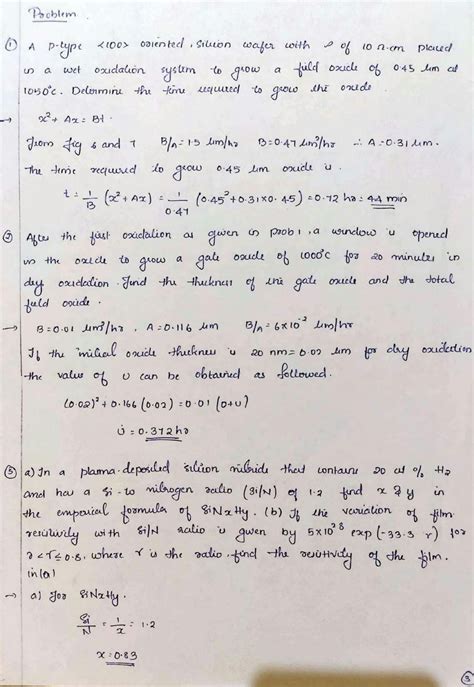 Problem
① A p-type <100> oriented, silicon wafer with ρ of 10 Ω-cm placed
in a wet oxidation system to grow a field oxide of 0.45 μm at
1050°c. Determine the time required to grow the oxide.
→ x² + Ax = Bt.
From fig 6 and 7 B/A = 1.5 μm/hr B = 0.47 μm²/hr ∴ A = 0.31 μm.
The time required to grow 0.45 μm oxide is
t = 1/B (x² + Ax) = 1/0.47 (0.45² + 0.31×0.45) = 0.72 hr = 44 min
② After the first oxidation as given in prob 1, a window is opened
in the oxide to grow a gate oxide of 1000°C for 20 minutes in
dry oxidation. Find the thickness of the gate oxide and the total
field oxide.
→ B = 0.01 μm²/hr, A = 0.116 μm B/A = 6×10⁻² μm/hr
If the initial oxide thickness is 20 nm = 0.02 μm for dry oxidation
the value of υ can be obtained as followed.
(0.02)² + 0.166 (0.02) = 0.01 (0+υ)
υ = 0.372 hr
③ a) In a plasma-deposited silicon nitride that contains 20 at % H₂
and has a si-to nitrogen ratio (Si/N) of 1.2 find x & y in
the emporical formula of SiNxHy. (b) If the variation of film
resitivity with Si/N ratio is given by 5×10²⁸ exp(-33.3 r) for
2<r≤0.8, where r is the ratio, find the resitivity of the film.
in (a)
→ a) For SiNxHy.
Si/N = 1/x = 1.2
x = 0.83
3